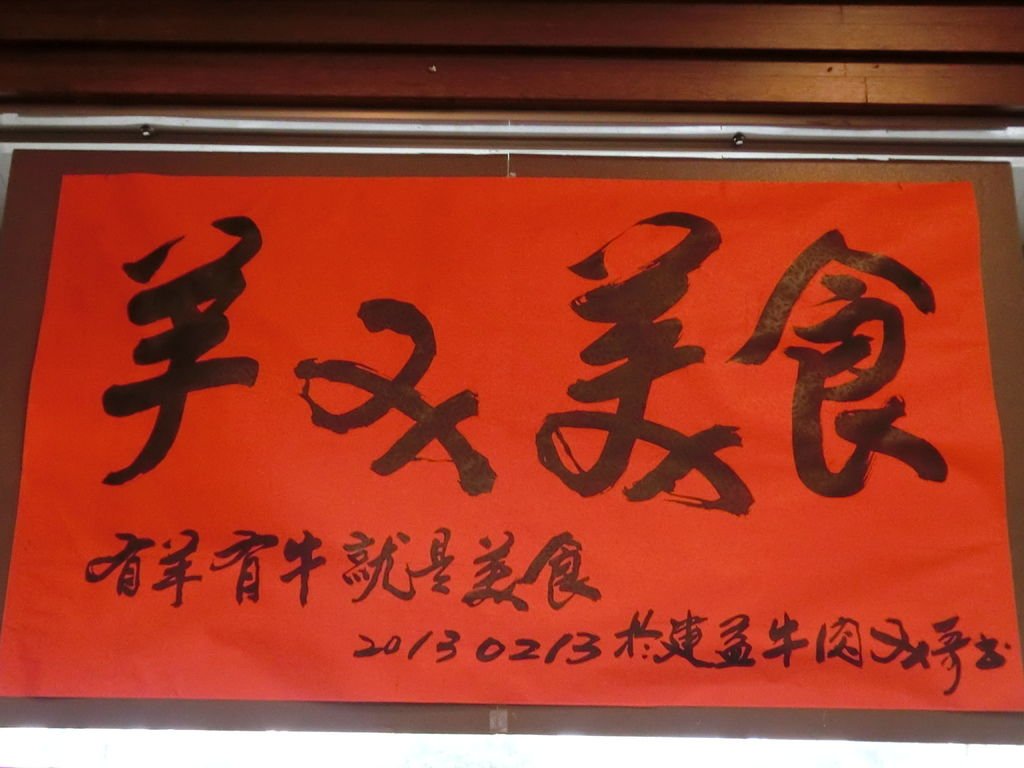 羊又美食
有羊有牛就是美食
20130213於建益牛肉又哥書